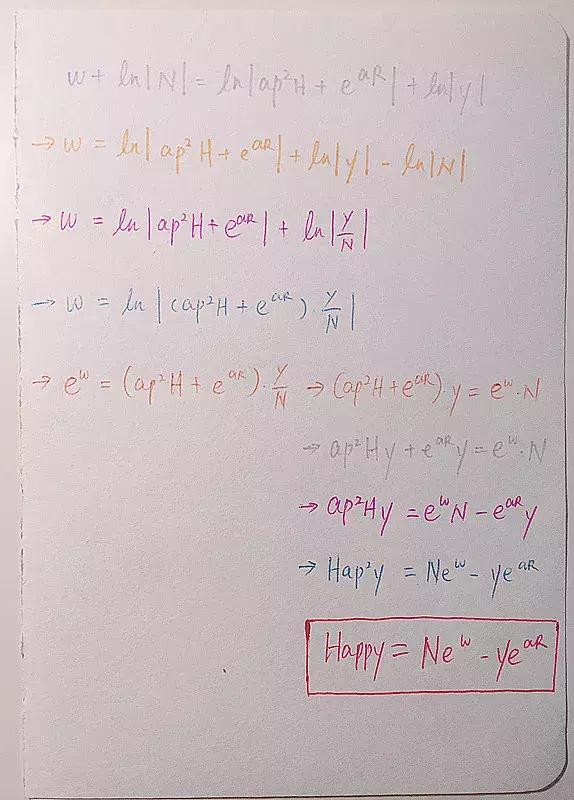 w + ln|N| = ln|ap²H + e^{aR}| + ln|y|
→ w = ln|ap²H + e^{aR}| + ln|y| - ln|N|
→ w = ln|ap²H + e^{aR}| + ln|y/N|
→ w = ln|(ap²H + e^{aR}) · y/N|
→ e^w = (ap²H + e^{aR}) · y/N → (ap²H + e^{aR}) · y = e^w · N
→ ap²Hy + e^{aR}y = e^w · N
→ ap²Hy = e^w N - e^{aR}y
→ Hap²y = Ne^w - ye^{aR}
Happy = Ne^w - ye^{aR}